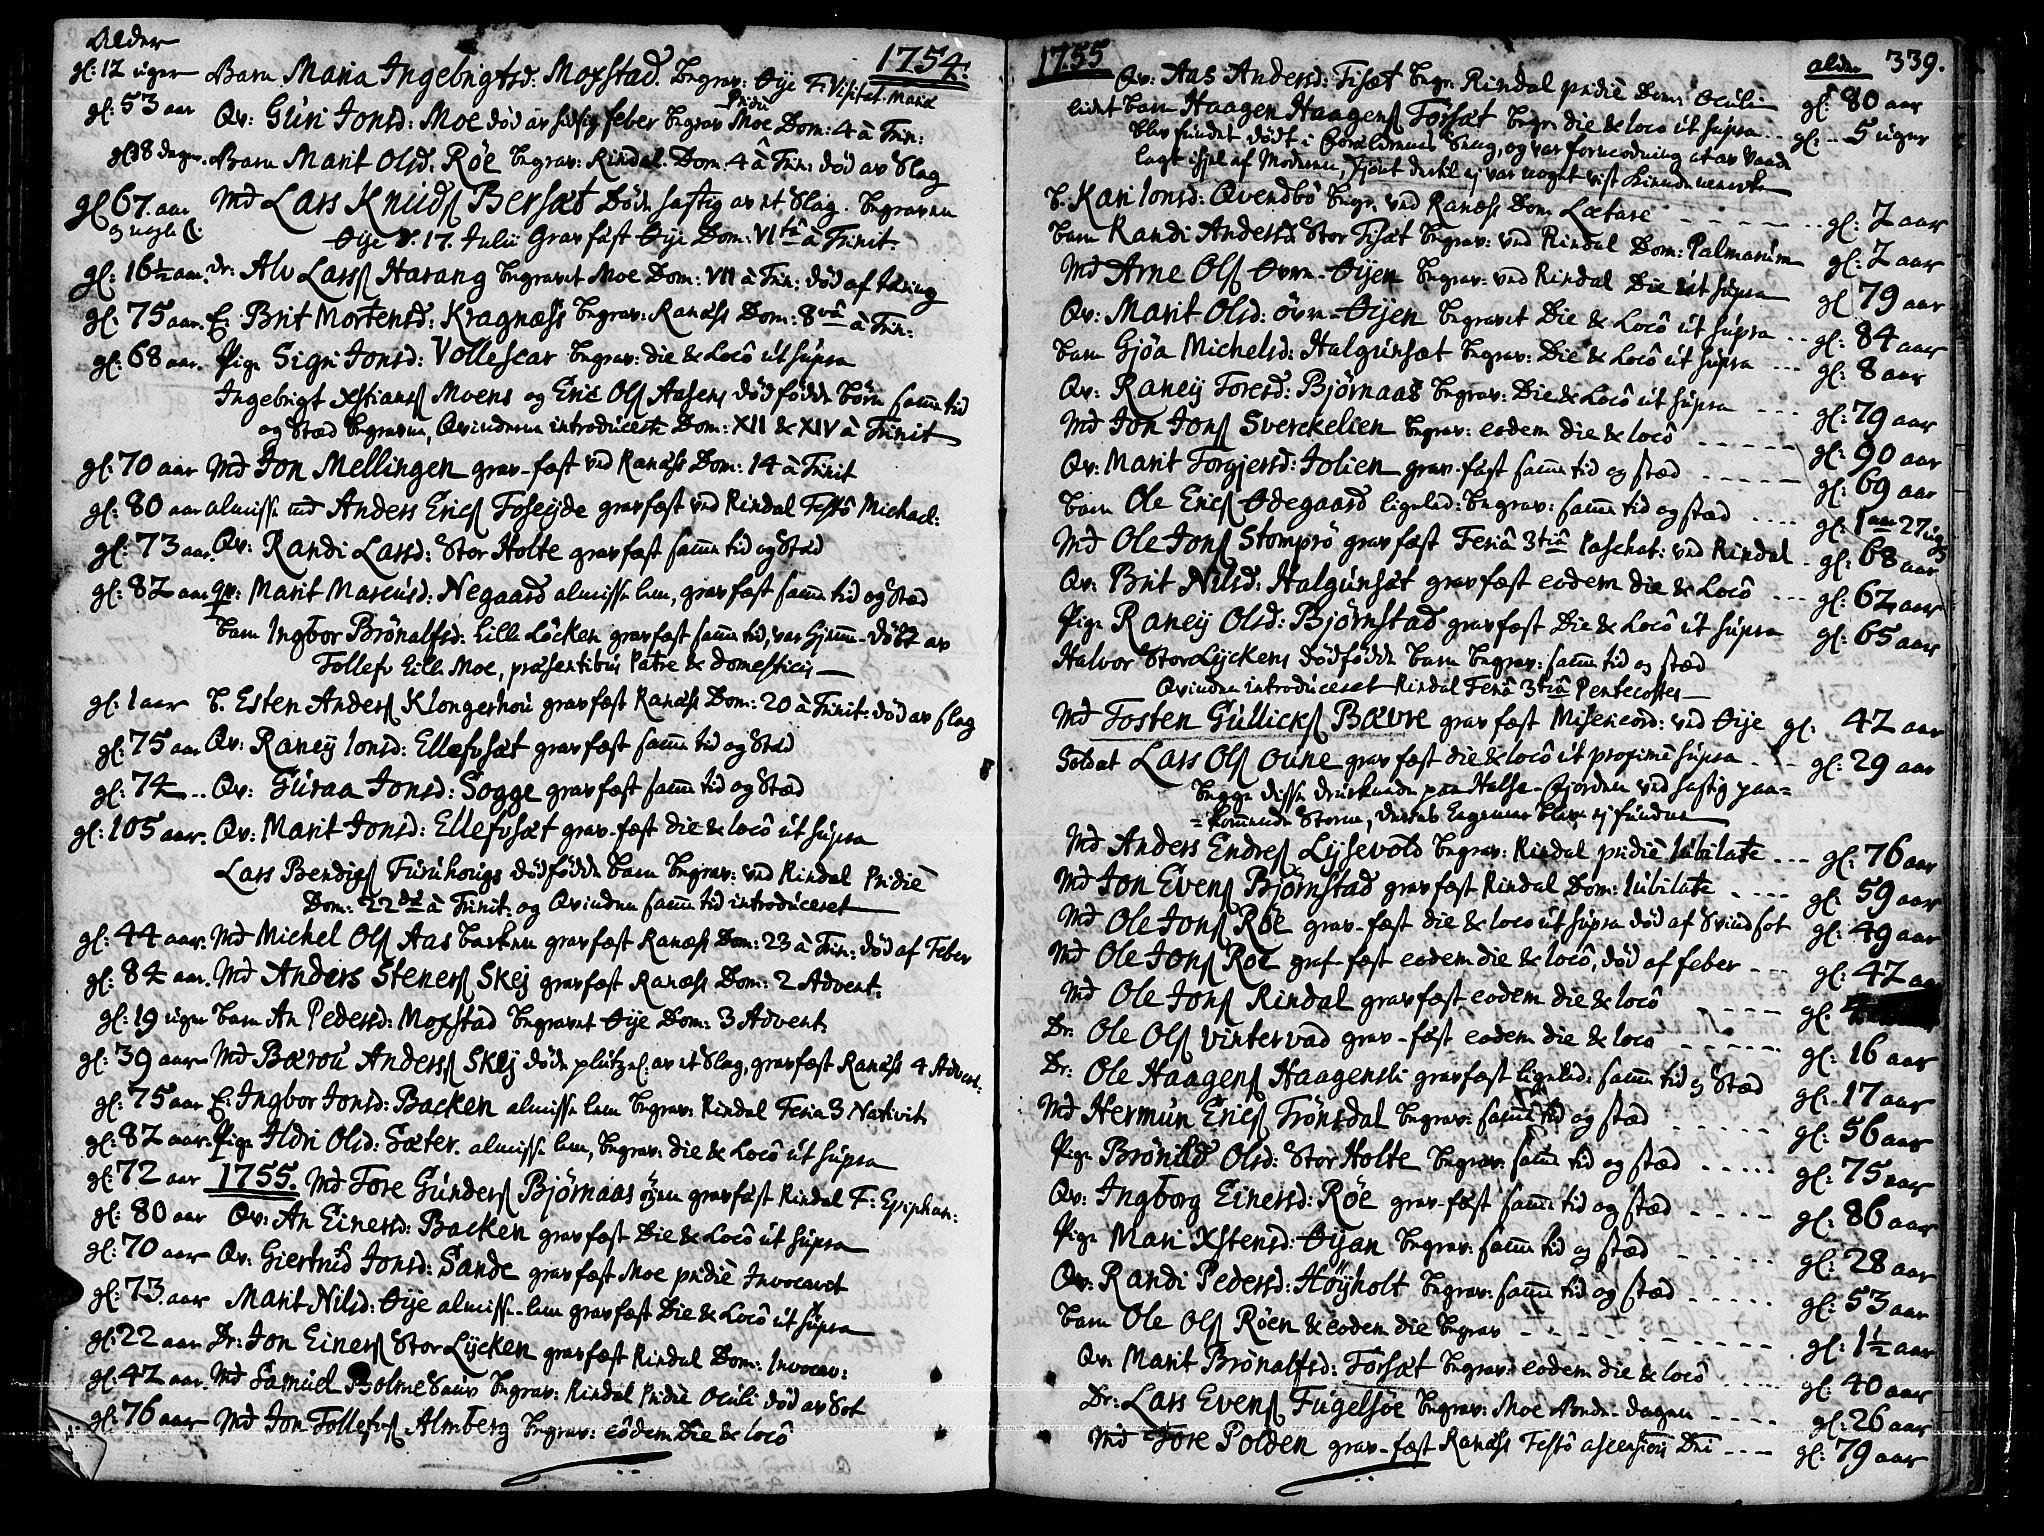 Alder
1754.
gl: 12 uger Barn Maria Ingebrigtsd: Moxstad. Begrav: Øije F: Visitat. Mariæ
gl: 53 aar Qv: Guri Jonsd: Moe død av hidsig feber begrav Moe Pridie Dom: 4 â Trin:
gl: 8 dager. Barn Marit Olsd. Røe begrav: Rindal. Dom: 4 â Trin: død av Slag
gl 67. aar Md Lars Knudsß Bersæt Døde hastig av et Slag. begraven
Øije d. 17. Julii Gravfæst Øije Dom: VI tâ â Trinit.
gl: 16½ aar. dr: Alv Larsß Harang begravet Moe Dom: VII â Trin: død af tæring
gl: 75 aar. E: Brit Mortensd: Kragnæss begrav: Ranæss Dom: 8vâ â Trin:
gl: 68 aar. Pige Sigri Jonsd: Vollescar begrav: die & Locô ut supra
Ingebrigt Xstiansß Moens og Eric Olsß Aasens dødfødde børn samme tid
og Stæd begravne, Qvinderne introduceste Dom: XII & XIV â Trinit
gl: 70 aar Md Jon Mellingen grav-fæst ved Ranæss Dom: 14 â Trinit
gl: 80 aar almisse md Anders Ericsß Foseijde gravfæst ved Rindal Festô Michael:
gl: 73 aar. Qv: Randi Larsd: Stor Holte gravfæst samme tid og Stæd
gl: 82 aar qv: Marit Marcusd: Negaard almisse lem, gravfæst samme tid og Stæd
barn Ingbor Brönalfsd: Lille Löcken gravfæst samme tid, var hjemme-döbt av
Tollef Lille Moe, præsentibus Patre & domesticis
gl: 1 aar b. Esten Andersß Klongerhou gravfæst Ranæss Dom: 20 â Trinit: død av slag
gl: 75 aar Qv: Raneÿ Jonsd: Ellefsæt gravfæst samme tid og Stæd
gl: 74 .. Qv: Guraa Jonsd: Sogge gravfæst samme tid og Stæd
gl: 105 aar. Qv: Marit Jonsd: Ellefsæt grav-fæst die & locô ut supra
Lars Bendigsß Furuhougs dødfødde barn begrav: ved Rindal Pridiè
Dom: 22 dâ â Trinit: og Qvinden samme tid introduceret
gl: 44 aar. Md Michel Olsß Aas backen gravfæst Ranæss Dom: 23 â Trin: død af Feber
gl: 84 aar. Md Anders Stenersß Skej gravfæst Ranæss Dom: 2 Advent:
gl: 19 uger barn An Pedersd: Moxstad begravet Øije Dom: 3 Advent:
gl: 39 aar Md Bærou Andersß Skej døde plutzel: av et Slag, gravfæst Ranæss 4 Advent:
gl: 75 aar E: Ingbor Jonsd: Backen almisse lem begrav: Rindal Feria 3 Nativit
gl: 82 aar. Pige Ildri Olsd: Sæter. almisse lem, begrav: die & Locô ut supra
gl: 72 aar 1755. Md Tore Gundersß Björnaas øgnen gravfæst Rindal F: Epiphan:
gl: 80 aar Qv: An Einersd: Backen gravfæst Die & Locô ut supra
gl: 70 aar Qv: Giertrud Jonsd: Sande gravfæst Moe pridiè Invocavit
gl: 73. aar Marit Nilsd: Øije almisse-lem gravfæst Die & Locô ut supra
gl: 22 aar Dr: Jon Einersß Stor Lÿcken gravfæst Rindal Dom: Invocav:
gl: 42 aar. Md Samuel Bolme Saur begrav: Rindal Pridiè Oculi død av Sot
gl: 76 aar Md Jon Tollefsß Almberg begrav: eôdem Die & locô
1755 alder 339.
Qv: Aas Andersd: Fiset begr: Rindal pridiè Dom: Oculi gl: 80 aar
lidet barn Haagen Haagensß Forsæt begr. die & loco ut supra .. gl: .. 5 uger
blev fundet dødt i Forældrenes Seng, og var formodning at av Vaade
lagt ihjel af Moderen, skiønt dertil ej var noget vist kiende merke
b. Kari Jonsd: Qvendbo begr. ved Ranæss Dom Lætare gl: 7 aar
barn Randi Andersd: Stor Fisæt begrav: ved Rindal Dom: Palmarum gl: 2 aar
Md Arne Olsß Øvre-Øijen begrav: ved Rindal Die ut supra gl 79 aar
Qv: Marit Olsd: øvre-Øijen begravet Die & Locô ut supra .. gl: 84 aar
barn Gjöa Michelsd: Halgunsæt begrav: Die & Locô ut supra --- gl: 8 aar
Qv: Raneÿ Toresd: Björnaas begrav: Die & Locô ut supra --- gl: 79 aar
Md Jon Jonsß Sverckelien begrav: eodem die & locô gl: 90 aar
Qv: Marit Torgjersd: Jolien grav-fæst samme tid og stæd gl: 69 aar
barn Ole Ericsß Ødegaard ligeled: begrav: samme tid og stæd gl: 1 aar 27 ug
Md Ole Jonsß Stomprö gravfæst Feriâ 3tiâ Paschat: ved Rindal . gl: 68 aar
Qv: Brit Nilsd: Halgunsæt gravfæst eodem die & Locô --- gl: 62 aar
Pige Raneÿ Olsd: Björnstad gravfæst Die & Locô ut supra gl: 65 aar
Halvor Stor Lÿckens dødfødde barn begrav: samme tid og stæd
Qvinden introduceret Rindal Feriâ 3tiâ Pentecostes
Md Tosten Gullicksß Bævre gravfæst Misericord: ved Øije gl: 42 aar
Soldat Lars Olsß Oune gravfæst die & locô ut proximè supra gl: 29 aar
begge disse druknede paa Halse-Fjorden ved hastig paa=
=kommende Storm, deres Legemer bleve ej funden
Md Anders Endresß Lÿsevold begrav: Rindal pridiè Iubilate --- gl: 76 aar
Md Jon Evensß Björnstad gravfæst Rindal Dom: Iubilate gl: 59 aar
Md Ole Jonsß Røe grav-fæst die & loco ut supra død af Svindsot gl: 49 aar
Md Ole Jonsß Røe graf-fæst eodem die & locô, død af feber --- gl: 42 aar
Md Ole Jonsß Rindal gravfæst eodem die & locô gl:
Dr: Ole Olsß Vintervad grav-fæst eodem die & loco gl: 16 aar
Dr: Ole Haagensß Haagensli gravfæst ligeled: samme tid og Stæd gl: 17 aar
Md Hermun Ericsß Trönsdal begrav: samme tid og stæd gl: 56 aar
Pige Brönild Olsd: Stor Holte begrav: samme tid og stæd gl: 75 aar
Qv: Ingborg Einersd: Röe grav-fæst samme tid og stæd gl: 86 aar
Pige Mari Xstensd: Øijan begrav: samme tid og stæd gl: 28 aar
Qv: Randi Pedersd: Höÿholt begrav: samme tid og stæd gl: 53 aar
barn Ole Olsß Röen & eodem die begrav gl: 1½ aar
Qv: Marit Brönalfsd: Forsæt begrav: eodem die & locô gl: 40 aar
Dr: Lars Evensß Fugelsöe begrav: Moe Bede-dagen gl: 26 aar
Md Tore Polden grav-fæst Ranæss Festô ascensionis Dni --- gl: 79 aar